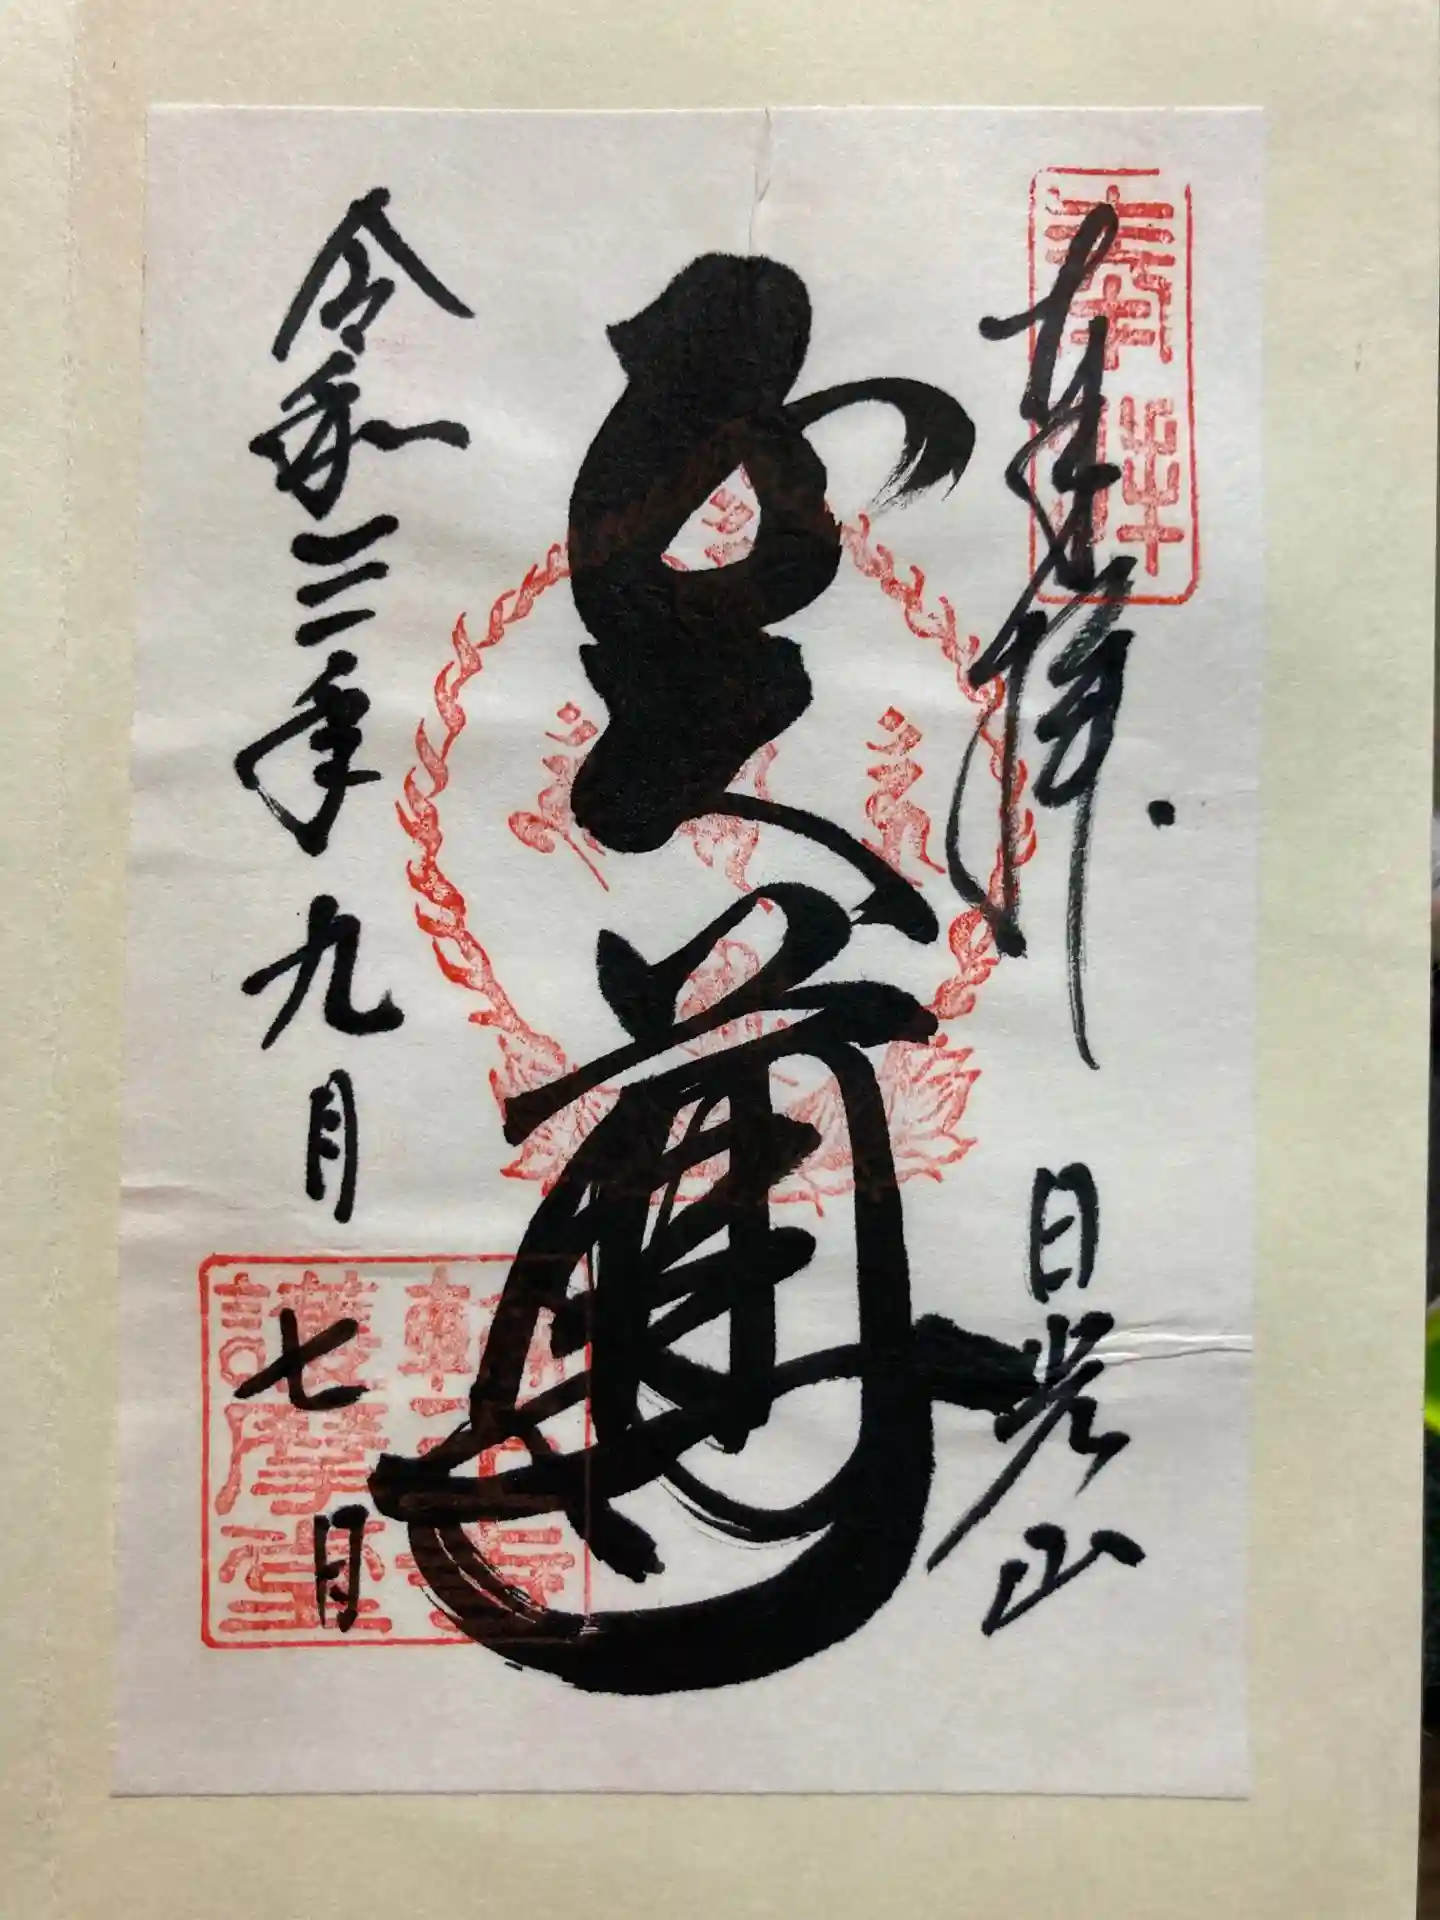 奉拝
奉拝
日光山
五大尊
令和三年九月七日
輪王寺
護摩堂